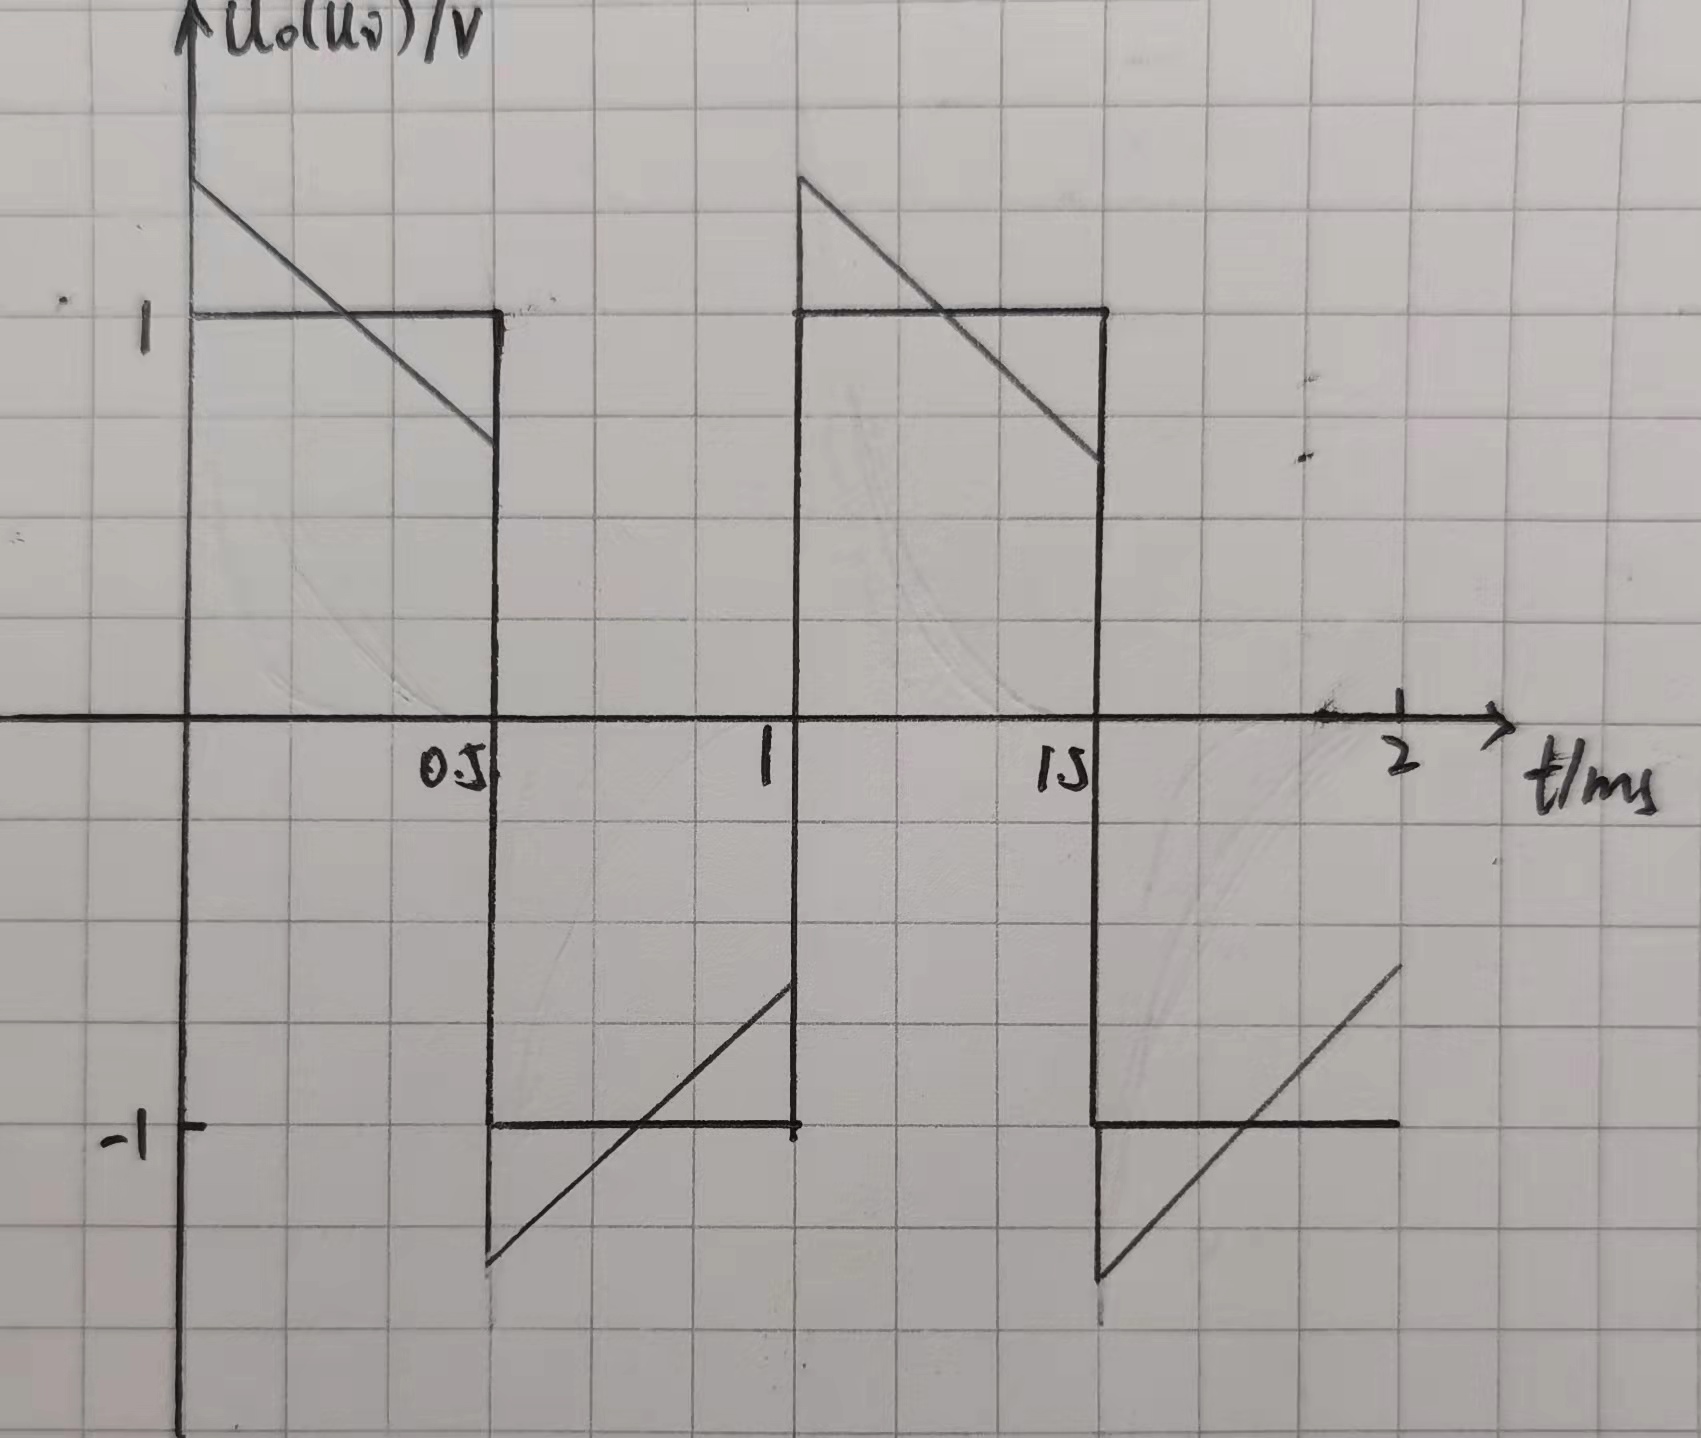 Uo(Ui)/V
1
0.5
1
1.5
2
t/ms
-1